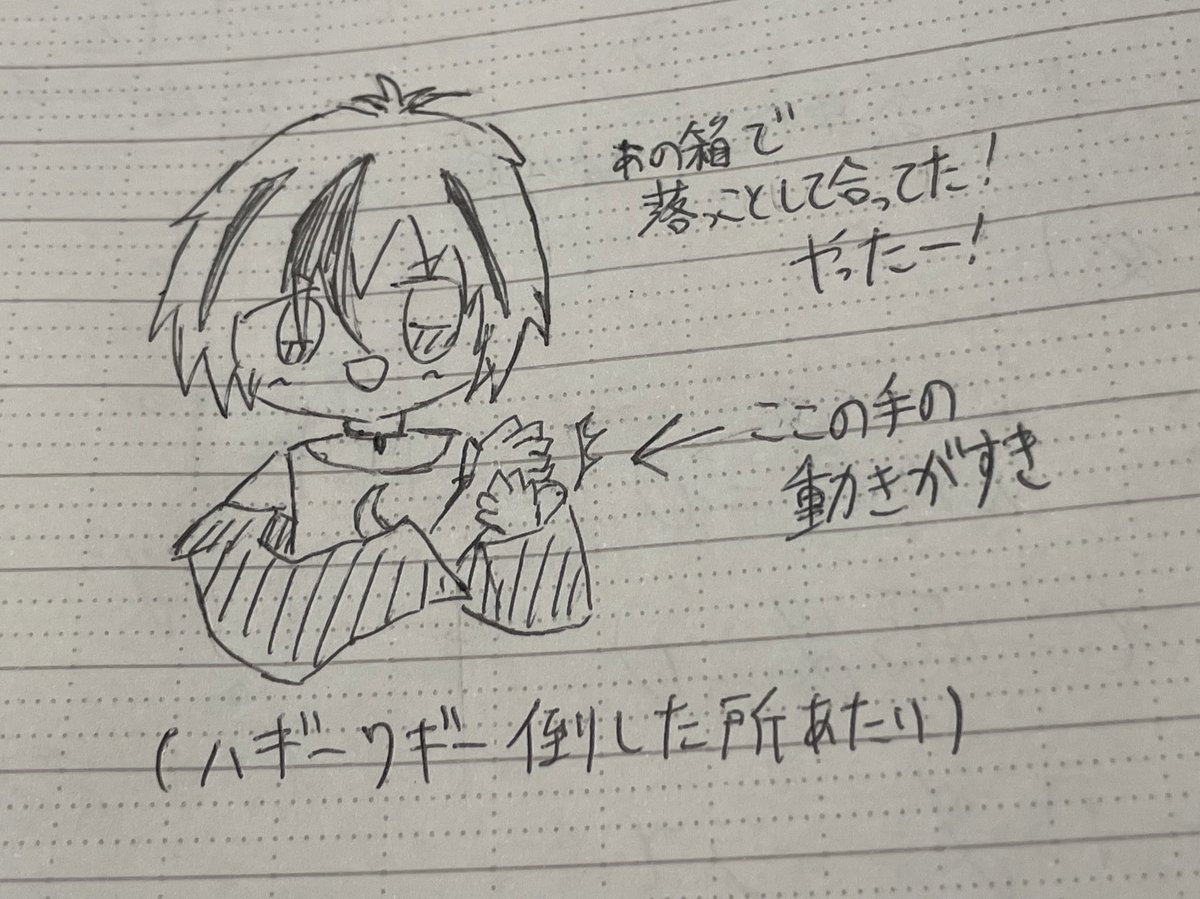 あの箱で
落っことして合ってた!
やったー!
ここの手の
動きがすき
(ハギーワギー倒した所あたり)